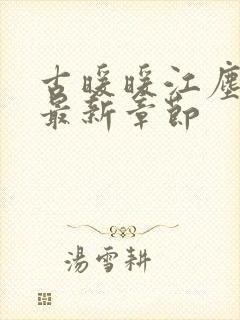 古暖暖江塵
最新章節
湯雪耕